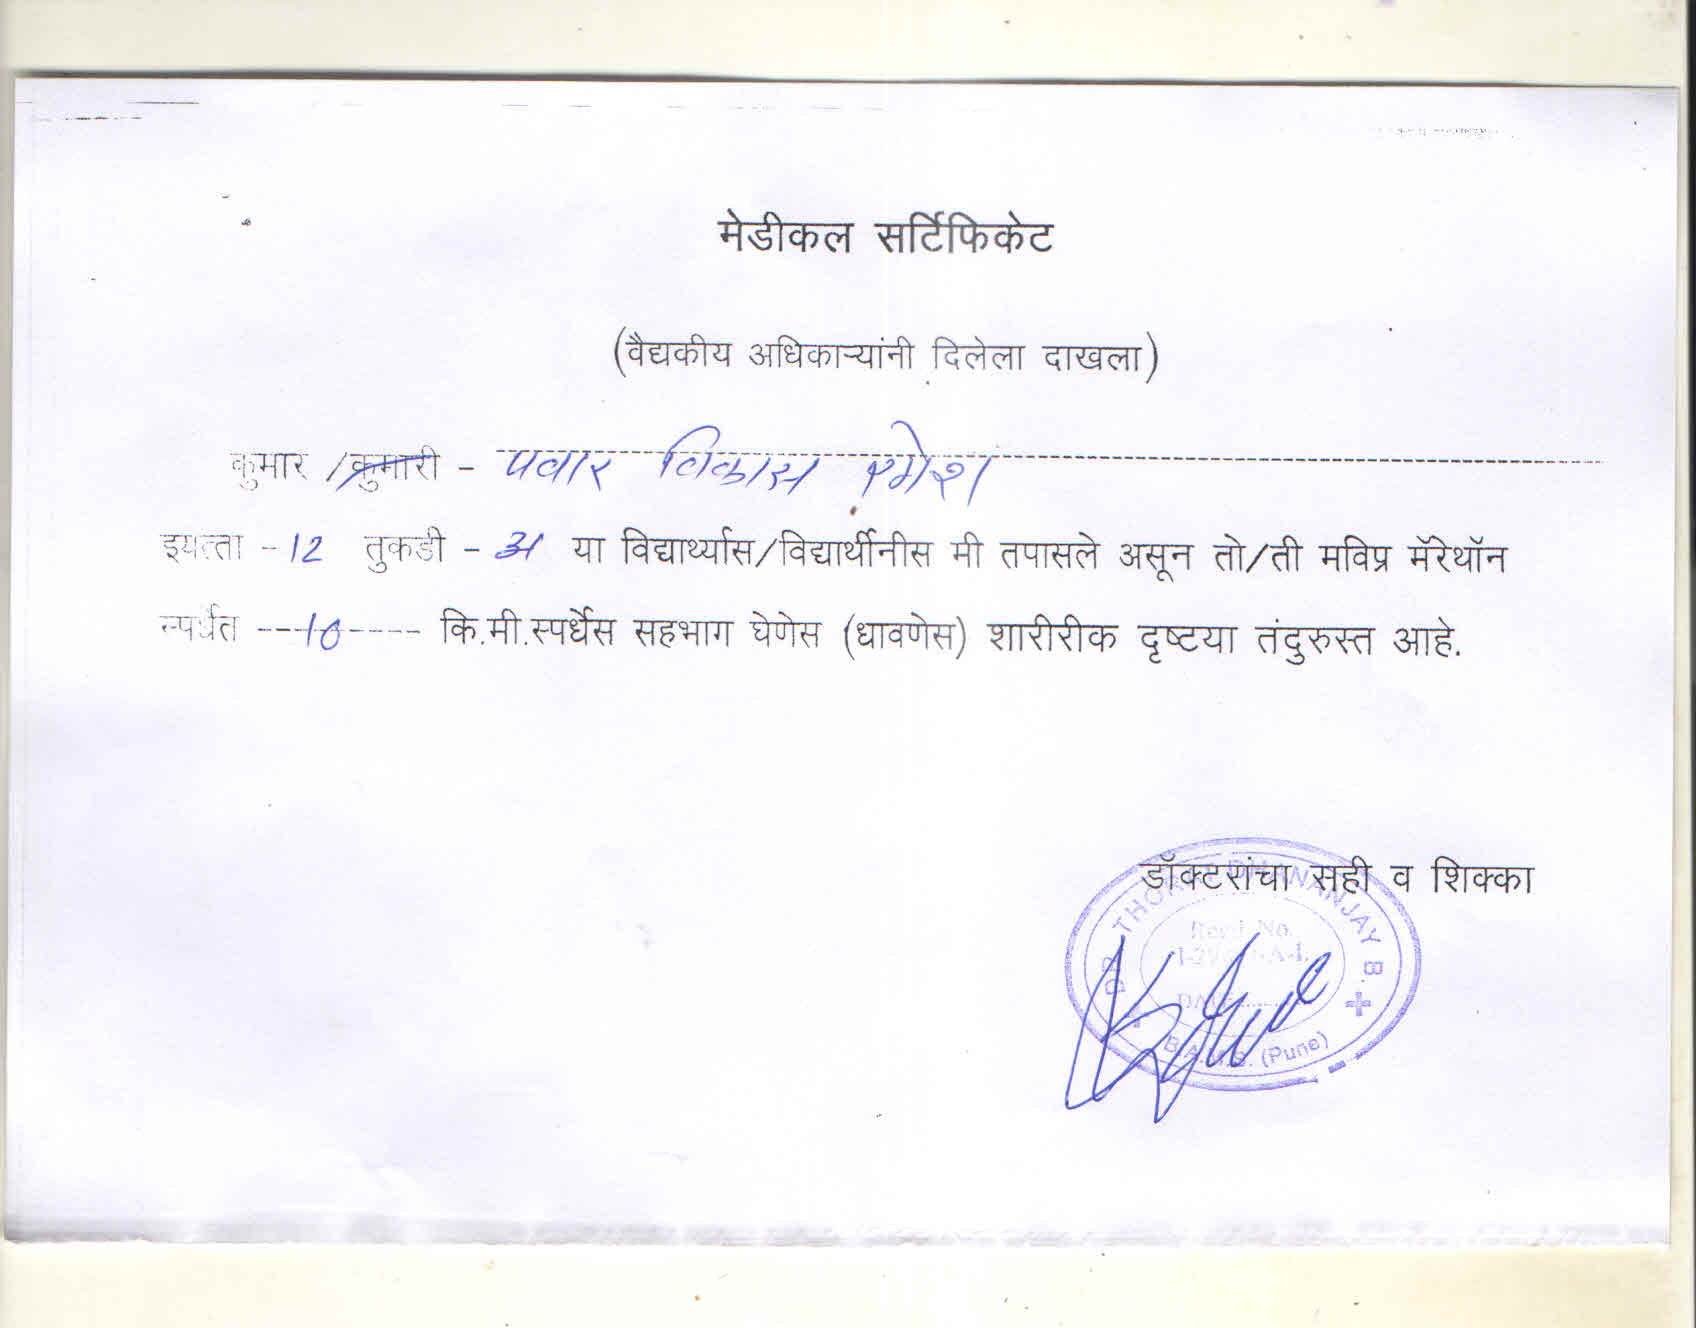 मेडीकल सर्टिफिकेट
(वैद्यकीय अधिकाऱ्यांनी दिलेला दाखला)
कुमार /कुमारी - पवार विकास रमेश
इयत्ता -12 तुकडी - अ या विद्यार्थ्यास/विद्यार्थीनीस मी तपासले असून तो/ती मविप्र मॅरेथॉन
स्पर्धेत ---10---- कि.मी.स्पर्धेस सहभाग घेणेस (धावणेस) शारीरीक दृष्टया तंदुरुस्त आहे.
डॉक्टरांचा सही व शिक्का
DR. THORAT DHANANJAY B.
Regd. No.
DATE
B.A.M.S. (Pune)